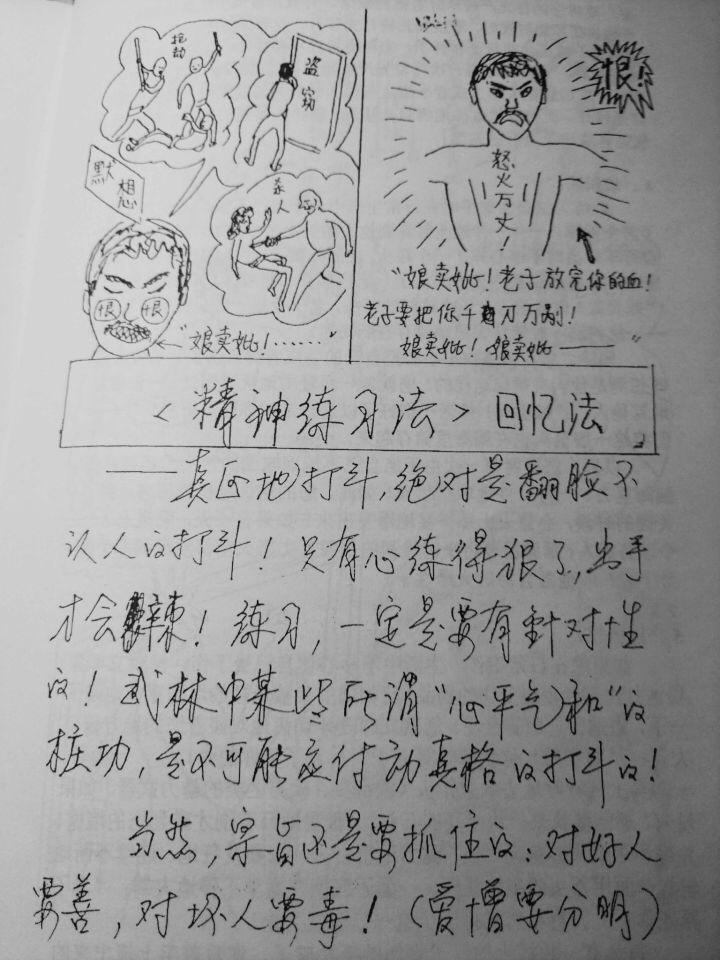 抢
劫
盗
窃
杀
人
默
想
恨
恨
"娘卖妣!……"
恨!
怒
火
万
丈
!
"娘卖妣!老子放完你的血!
老子要把你千刀万剐!
娘卖妣!娘卖妣——"
<精神练习法>回忆法
——真正地打斗,绝对是翻脸不
认人的打斗!只有心练得狠了,出手
才会辣!练习,一定是要有針对性
的!武林中某些所谓"心平气和"的
桩功,是不可能应付动真格的打斗的!
当然,宗旨还是要抓住的:对好人
要善,对坏人要毒!(爱憎要分明)